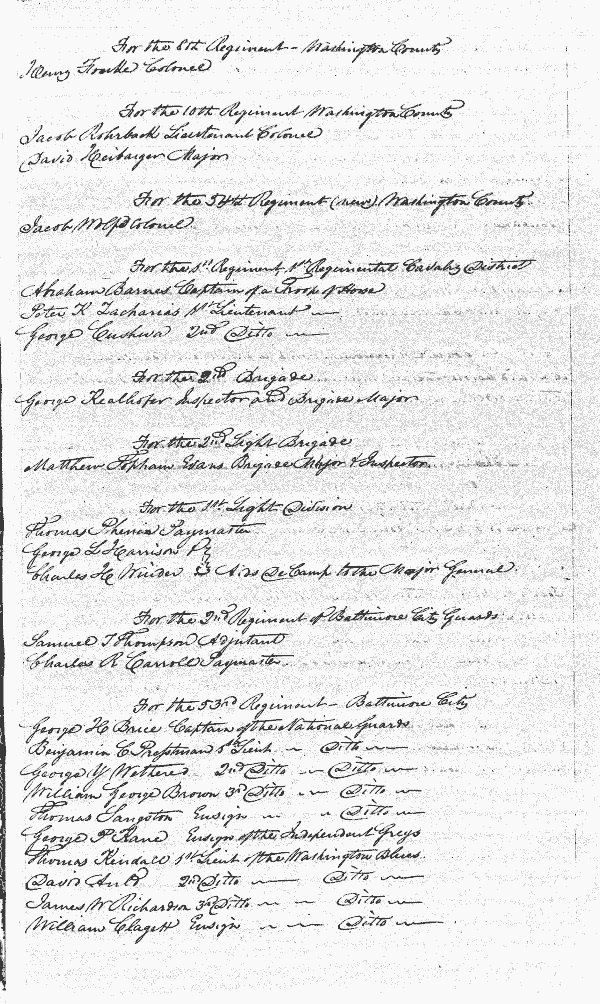 For the 8th Regiment - Washington County
Henry Fouke Colonel
For the 10th Regiment Washington County
Jacob Rohrback Lieutenant Colonel
David Heibarger Major
For the 54th Regiment (new) Washington County
Jacob Wolf Colonel
For the 1st Regiment 1st Regimental Cavalry District
Abraham Barnes Captain of a Troop of Horse
Peter K Zacharias 1st Lieutenant
George Cushwa 2nd Ditto
For the 2nd Brigade
George Kealhofer Inspector and Brigade Major
For the 2nd Light Brigade
Matthew Topham Evans Brigade Major & Inspector
For the 1st Light Division
Thomas Phenix Paymaster
George L Harrison &
Charles H Winder Aids De Camp to the Major General
For the 2nd Regiment of Baltimore City Guards
Samuel T Thompson Adjutant
Charles R Carroll Paymaster
For the 53rd Regiment - Baltimore City
George H Brice Captain of the National Guards
Benjamin C Presstman 1st Lieut Ditto
George Y Wethered 2nd Ditto Ditto
William George Brown 3rd Ditto Ditto
Thomas Sangston Ensign Ditto
George P Kane Ensign of the Independent Greys
Thomas Kendall 1st Lieut of the Washington Blues
David Auld 2nd Ditto Ditto
James W Richardson 3rd Ditto Ditto
William Clagett Ensign Ditto